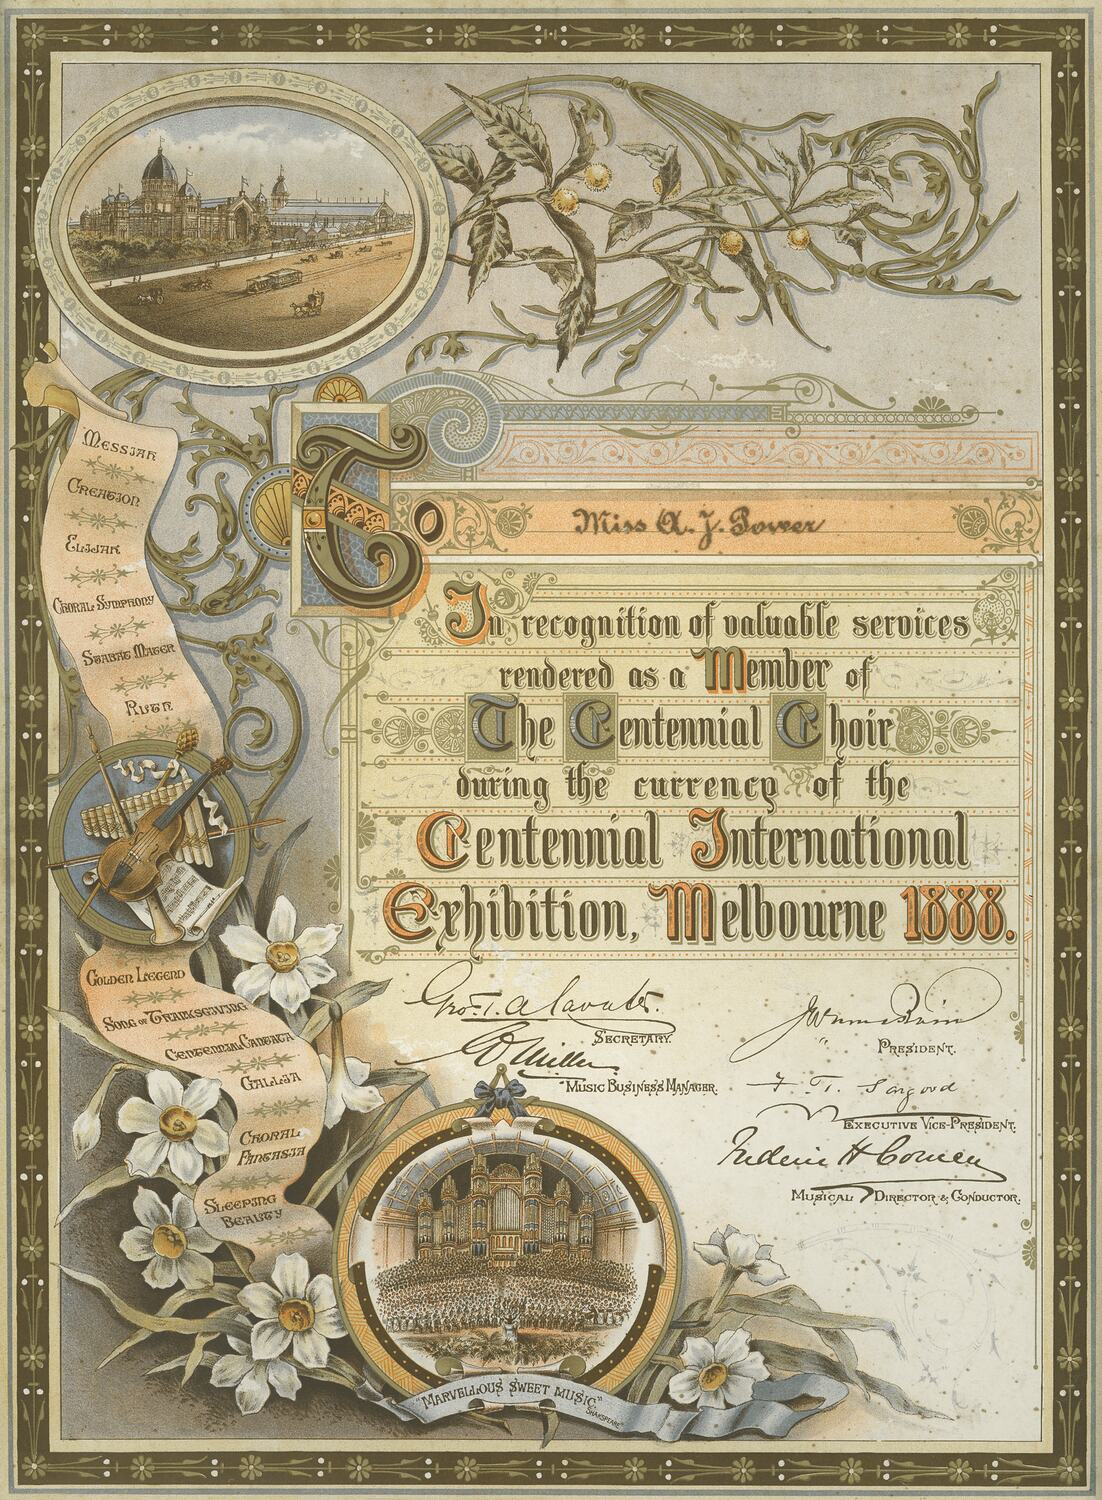 Messiah
Creation
Elijah
Choral Symphony
Stabat Mater
Ruth
To
Miss A. J. Power
In recognition of valuable services
rendered as a Member of
The Centennial Choir
during the currency of the
Centennial International
Exhibition, Melbourne 1888.
Golden Legend
Song of Thanksgiving
Centennial Cantata
Gallia
Choral
Fantasia
Sleeping
Beauty
Secretary.
President.
Miller
Music Business Manager.
F. T. Sargood
Executive Vice-President.
Frederic H Cowen
Musical Director & Conductor.
"Marvellous sweet music."
Shakspeare